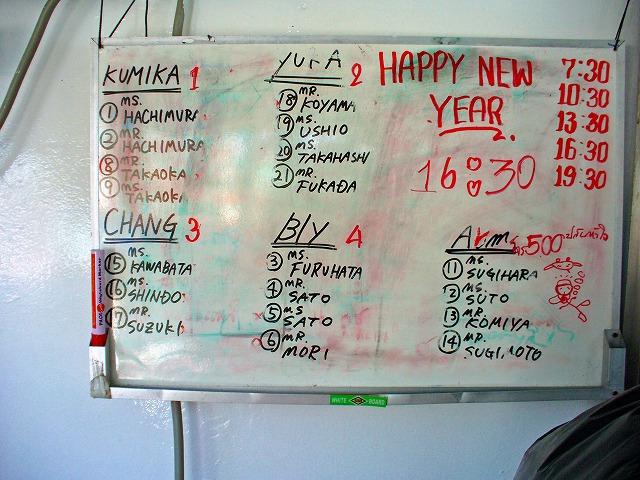 KUMIKA 1
① MS. HACHIMURA
② MR. HACHIMURA
⑧ MR. TAKAOKA
⑨ MS. TAKAOKA
YurA 2
⑱ MR. KOYAMA
⑲ MS. USHIO
⑳ MS. TAKAHASHI
㉑ MR. FUKADA
HAPPY NEW
YEAR
16:30
7:30
10:30
13:30
16:30
19:30
CHANG 3
⑮ MS. KAWABATA
⑯ MS. SHINDO
⑰ MR. SUZUKI
Bly 4
③ MS. FURUHATA
④ MR. SATO
⑤ MS SATO
⑥ MR. MORI
Arm 500
⑪ MS. SUGIHARA
⑫ MS. SUTO
⑬ MR. KOMIYA
⑭ MR. SUGIMOTO
WHITE BOARD